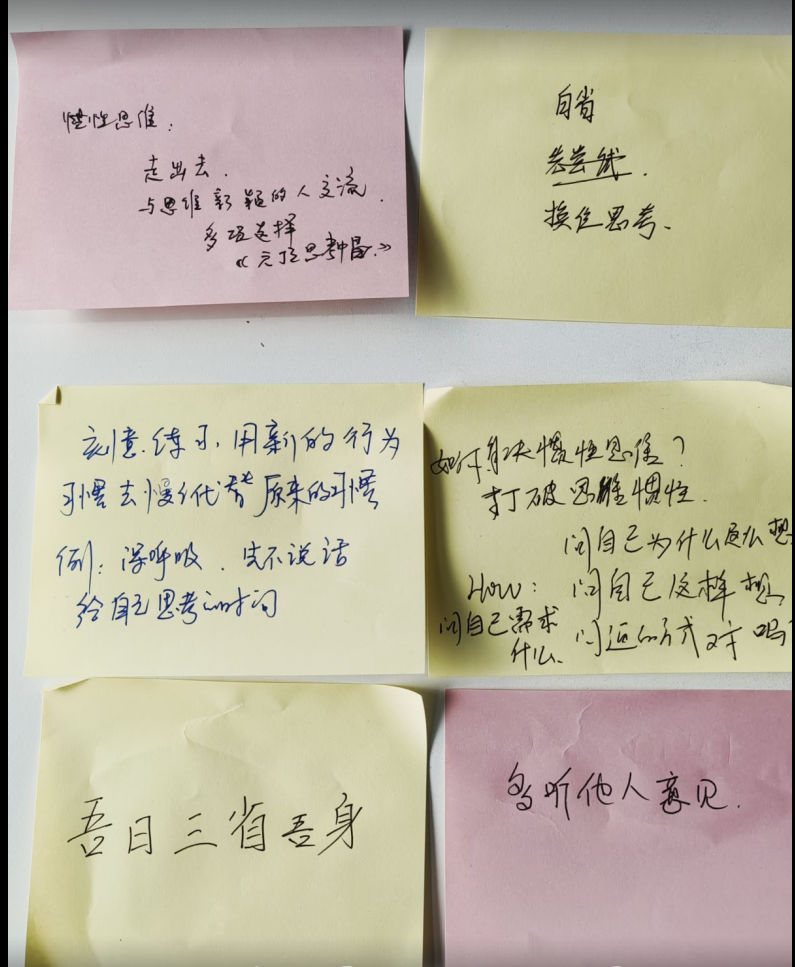 惯性思维：
走出去.
与思维新颖的人交流.
多项选择
《 思考 》
自省
换位思考.
刻意练习，用新的行为
习惯去慢慢代替原来的习惯
例：深呼吸．先不说话
给自己思考的时间
如何解决惯性思维？
打破思维惯性.
问自己为什么这么想
How：问自己这样想
问自己需求 问返的方式对吗？
什么.
吾日三省吾身
多听他人意见.